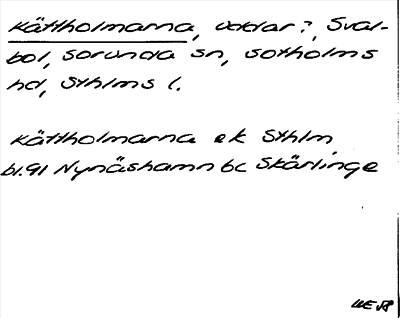 Kättholmarna, uddar?, Sval-
bol, Sorunda sn, Sotholms
hd, Sthlms l.
Kättholmarna ek Sthlm
bl.91 Nynäshamn bc Skärlinge